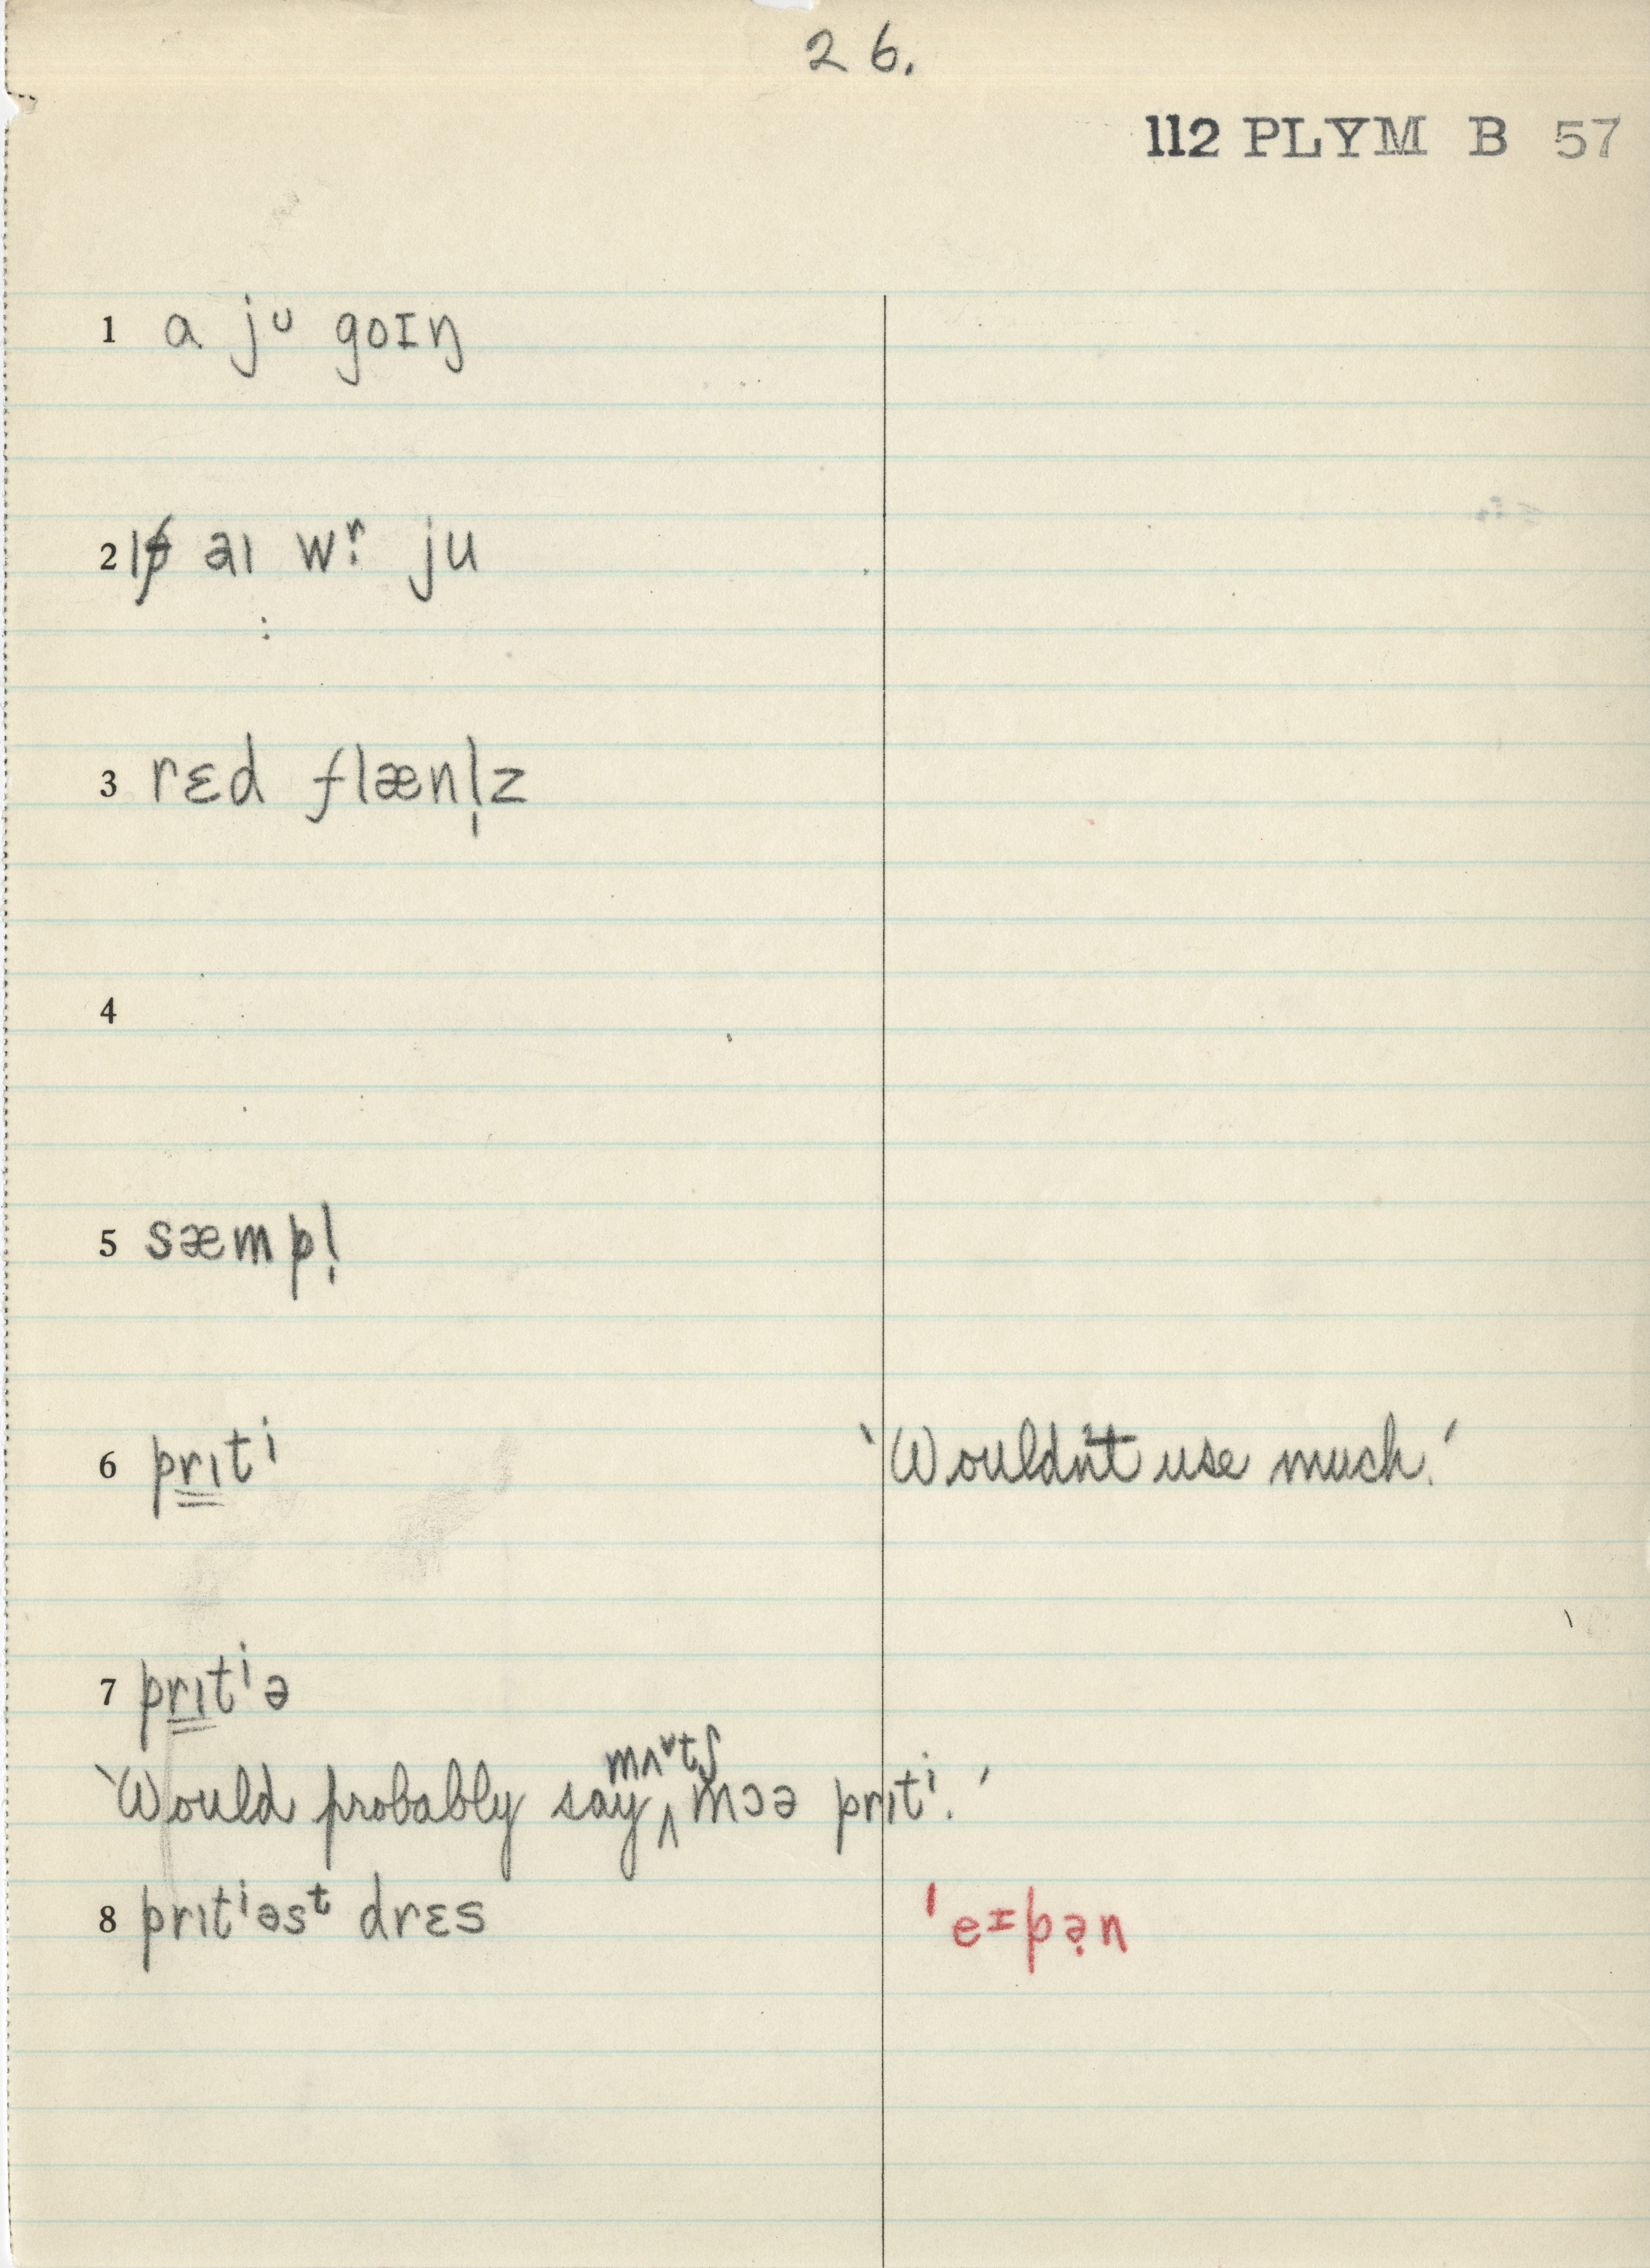 26.
112 PLYM B 57
1 a jᶷ goɪŋ
2 aɪ wr̤ ju
3 rɛd flænl̩z
4
5 sæmpl̩
6 pr̳ɪ̳tⁱ 'Wouldn't use much.'
7 pr̳ɪ̳tⁱə
mʌᵛtʃ
'Would probably say ‸ mɔə prɪtⁱ.'
8 prɪtⁱəsᵗ drɛs 'eᶦpə̣n